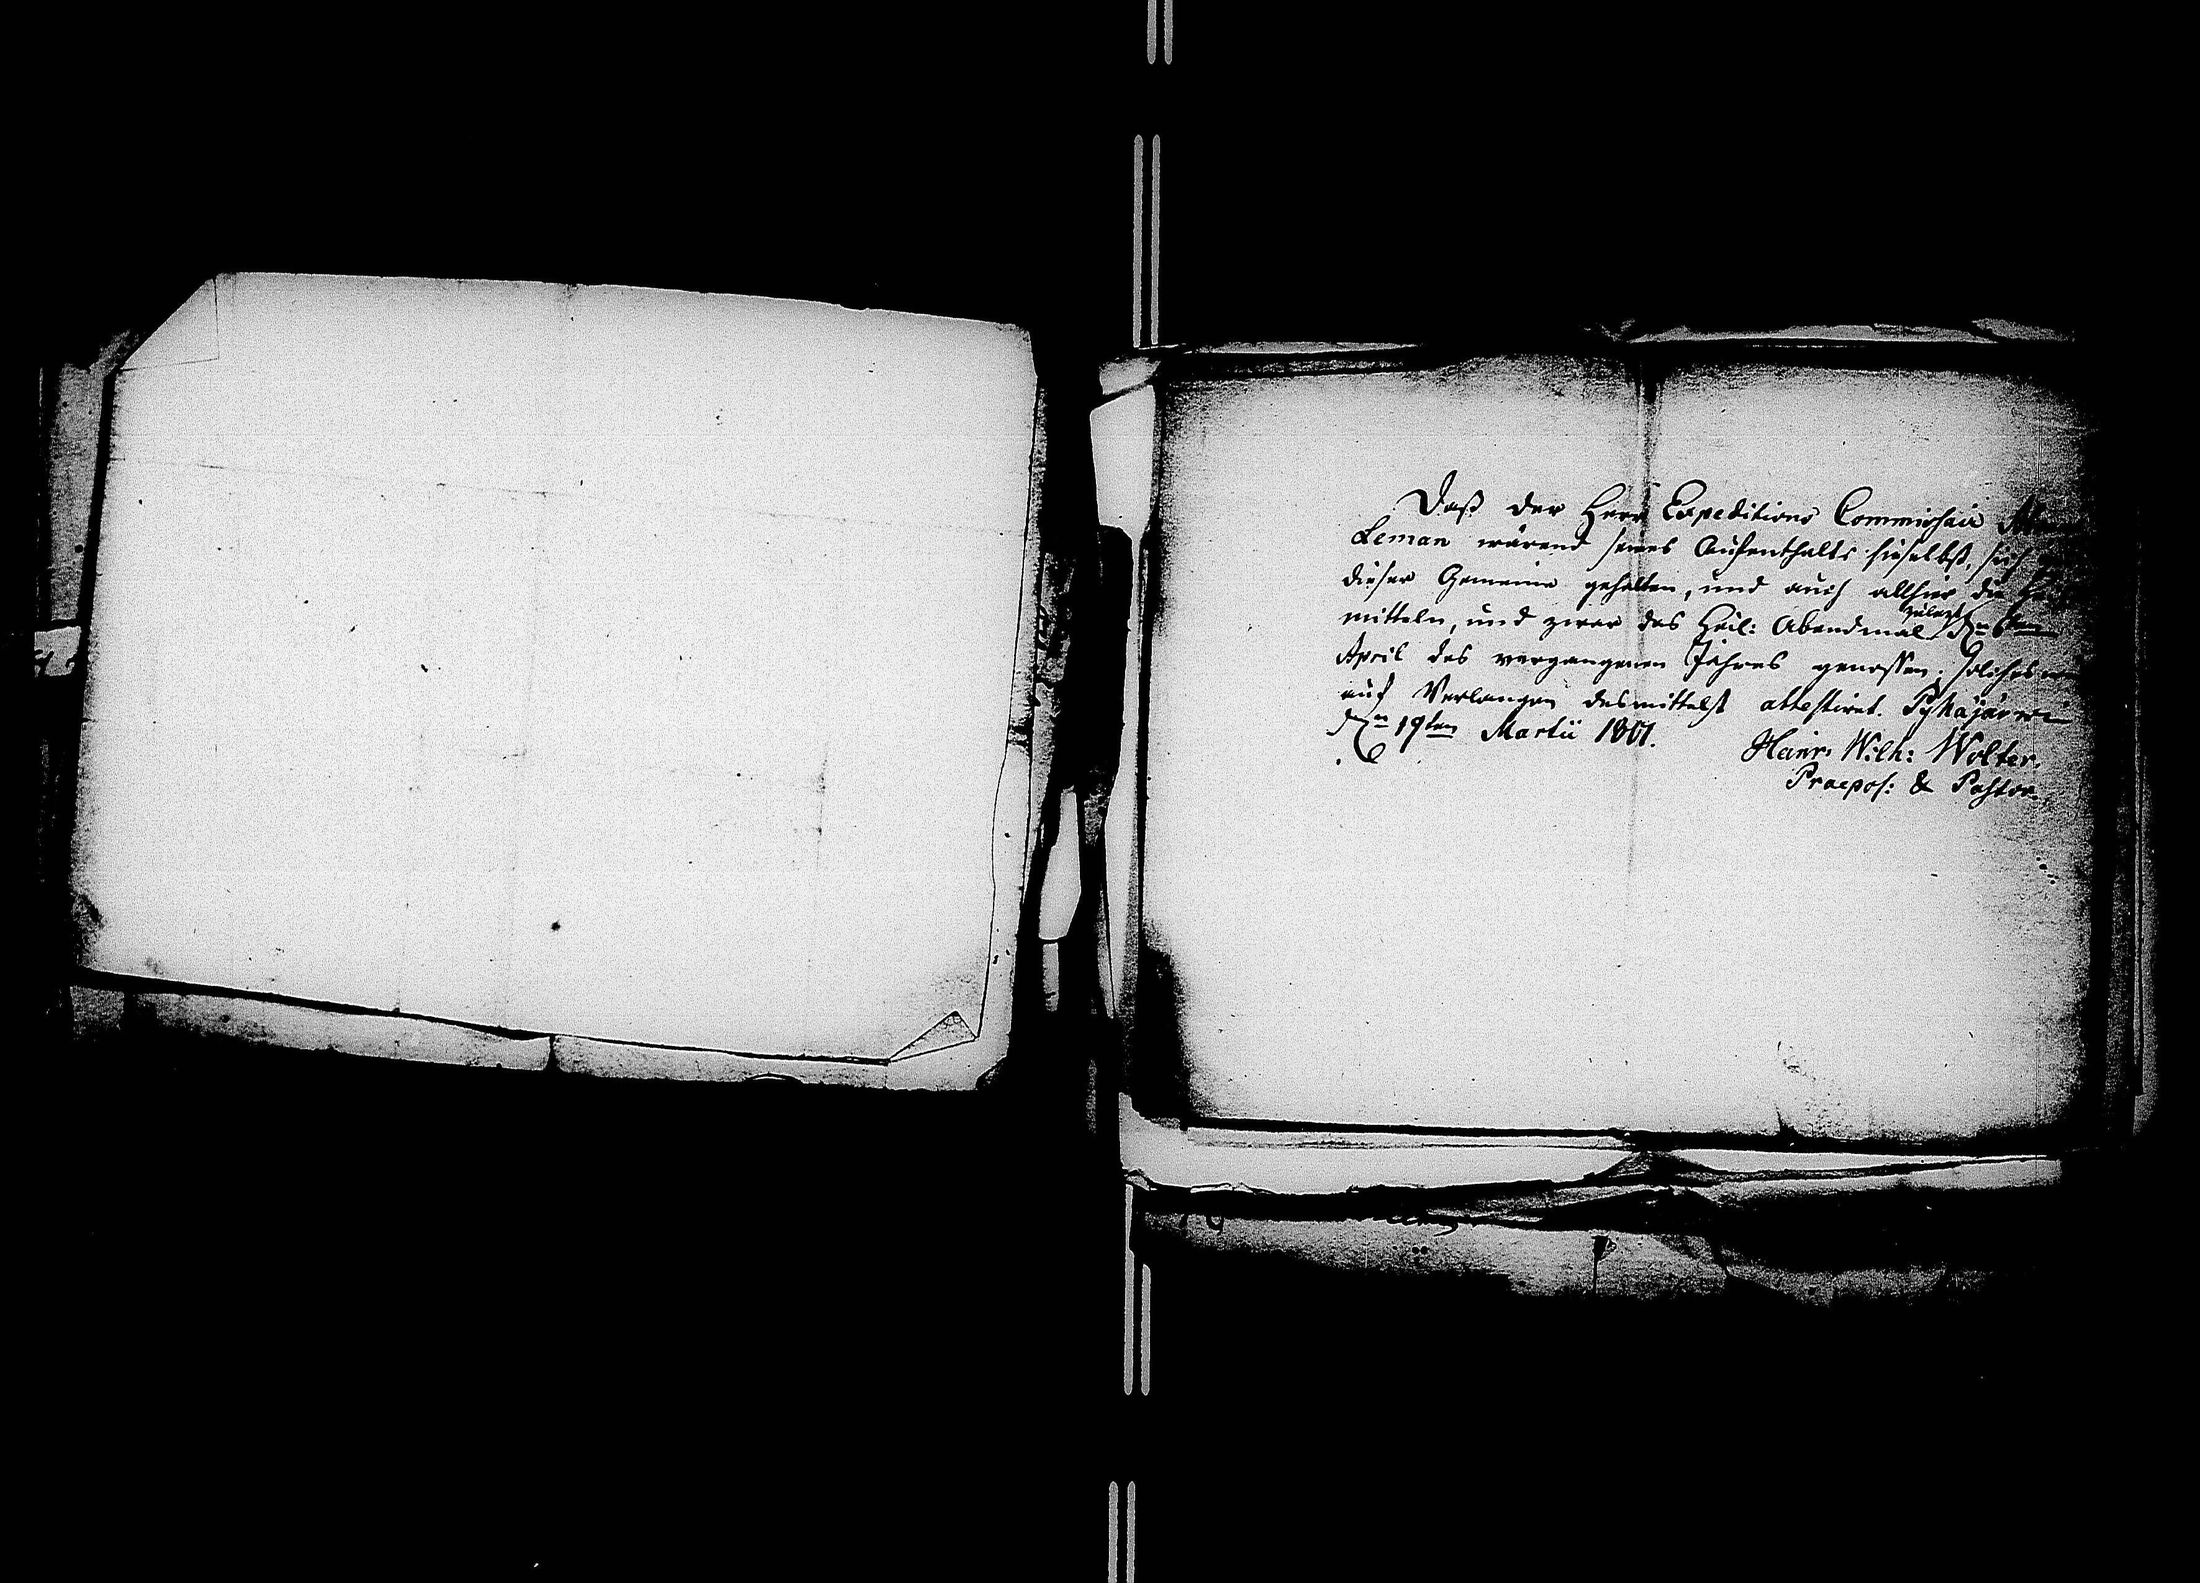 Daß der Herr Expeditions Commissair
Leman wärend seines Aufenthalts hieselbst, sich
dieser Gemeine gehalten, und auch allhier die
mitteln, und zwar das Heil: Abendmal zuletzt d. 6ten
April des vergangenen Jahres genossen; solches
auf Verlangen desmittelst attestiret. Pyhäjärwi
d. 19ten Martii 1801.
Heinr. Wilh: Wolter.
Praepos: & Pastor.